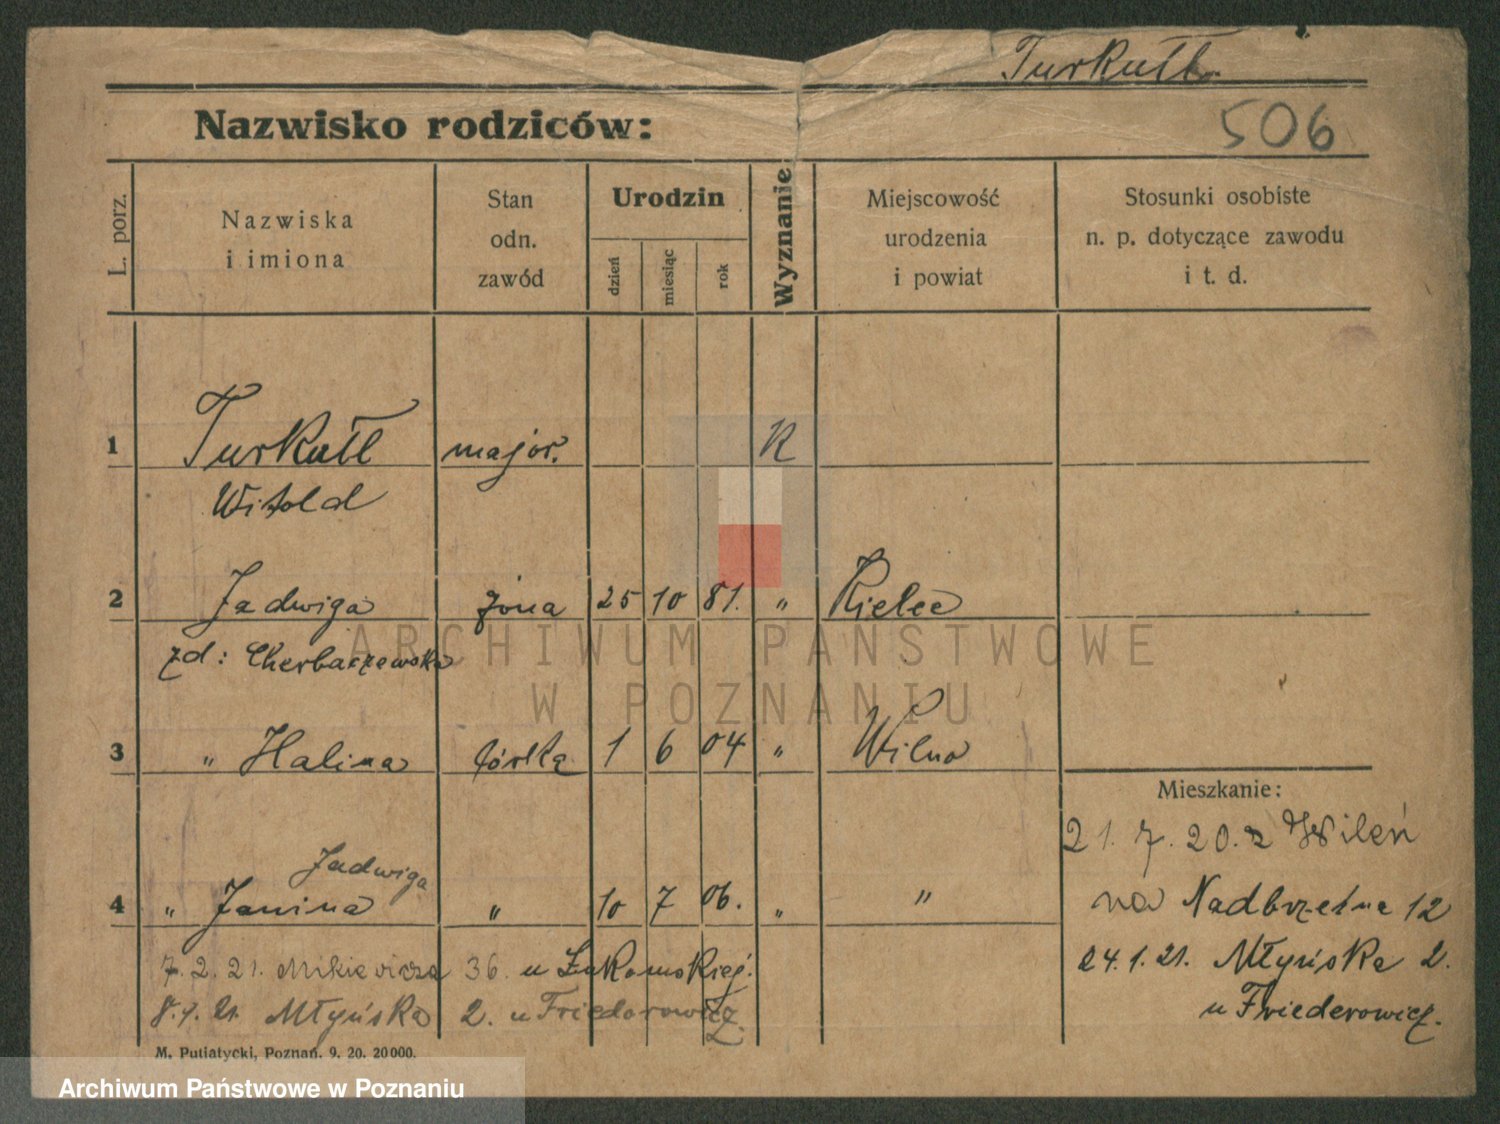 Turkułł
506
Nazwisko rodziców:
L. porz.
Nazwiska
i imiona
Stan
odn.
zawód
Urodzin
dzień
miesiąc
rok
Wyznanie
Miejscowość
urodzenia
i powiat
Stosunki osobiste
n. p. dotyczące zawodu
i t. d.
1 Turkułł major. R
Witold
2 Jadwiga żona 25 10 81. " Kielce
zd: Cherbaczewska
3 " Halina córka 1 6 04 " Wilno
Jadwiga
4 " Janina " 10 7 06. " "
Mieszkanie:
21. 7. 20. z Wileń
na Nadbrzeżna 12
24. 1. 21. Młyńska 2.
u Friederowicz.
7. 2. 21. Mikiewicza 36. u
Młyńska 2. u Friedorowicz.
M. Putiatycki, Poznań. 9. 20. 20000.
ARCHIWUM PAŃSTWOWE
W POZNANIU
Archiwum Państwowe w Poznaniu